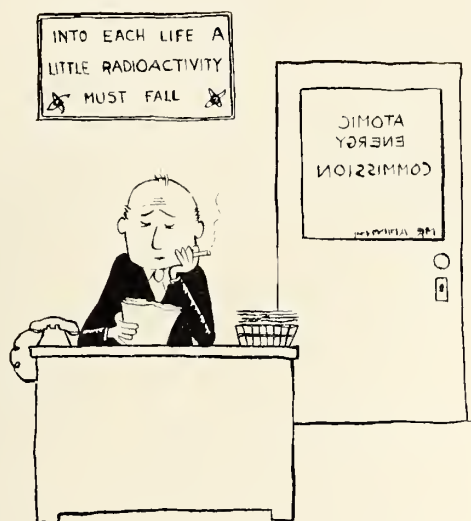 INTO EACH LIFE A
LITTLE RADIOACTIVITY
MUST FALL
ATOMIC
ENERGY
COMMISSION